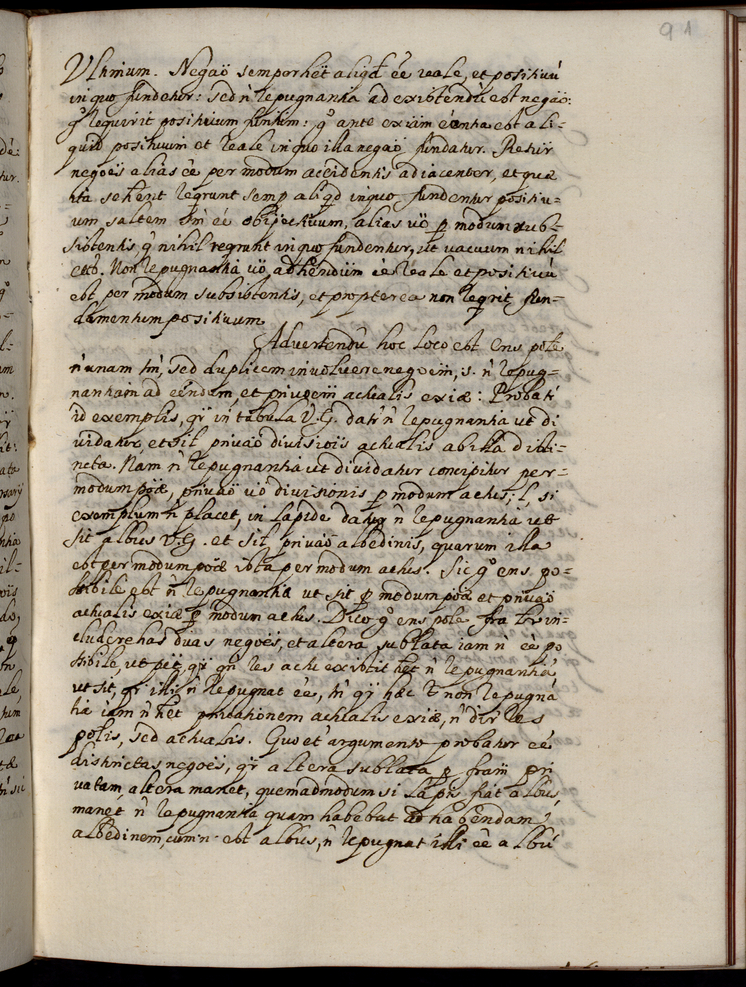 91
Vltimum. Negaõ semper hët aliqd ẽe reale, et positiuũ
in quo fundetur: sed ñ repugnantia ad existendũ est negaõ:
gº requirit positiuum funtum: gº ante exiãm est ali-
quid positiuum et reale in quo illa negaõ fundatur. Retur
negoẽs alias ẽe per modum accidentis adiacenter, et
semp aliqd in quo fundentur positiu-
um saltem ẽe obiectiuum, alias uõ p modum sub-
sistentis, gº nihil reqrunt in quo fundentur, ut vacuum nihil
est. Non repugnantia uõ ad ẽe reale et positiuũ
est per modum subsistentis, et propterea non reqrit fun-
damentum posituum
Aduertendũ hoc loco est Ens pole
ñ unam tm̃, sed duplicem inuoluere negoẽm, s. ñ repug-
nantiam ad eẽndum, et priuoẽm actualis exiæ: Probatr
id exemplis, qr̃ in tabula V.G. datr ñ repugnantia ut di
uidatur, et sil priuaõ diuisiõis actualis ab illa disti-
ncta. Nam ñ repugnantia ut diuidatur concipitur per
modum poæ, priuaõ uõ diuisionis p modum actus; l si
exemplum ñ placet, in lapide datur ñ repugnantia ut
sit albus V.G. et sil priuaõ albedinis, quarum illa
est per modum poæ ista per modum actus. Sic gº ens po-
ssibile est ñ repugnantia ut sit p modum poæ et priuaõ
actualis exiæ p modum actus. Dico gº ens pole in-
cludere has duas negoẽs, et altera sublata iam ñ ẽe po
ssibile, ut qr̃ qñ res actu existit hët ñ repugnantiã
ut sit, qr̃ illi ñ repugnat ẽe, tñ qr̃ hæc non repugnã
tia iam ñ hët priuationem actualis exiæ, ñ dir res
polis, sed actualis. Quo et argumento probatur ẽe
distinctas negoẽs, qr̃ altera sublata p pri
uatam, altera manet, quemadmodum si lapis fiat albus,
manet ñ repugnantia quam habebat ad habendam
albedinem, cum n. est albus, ñ repugnat illi ẽe albũ